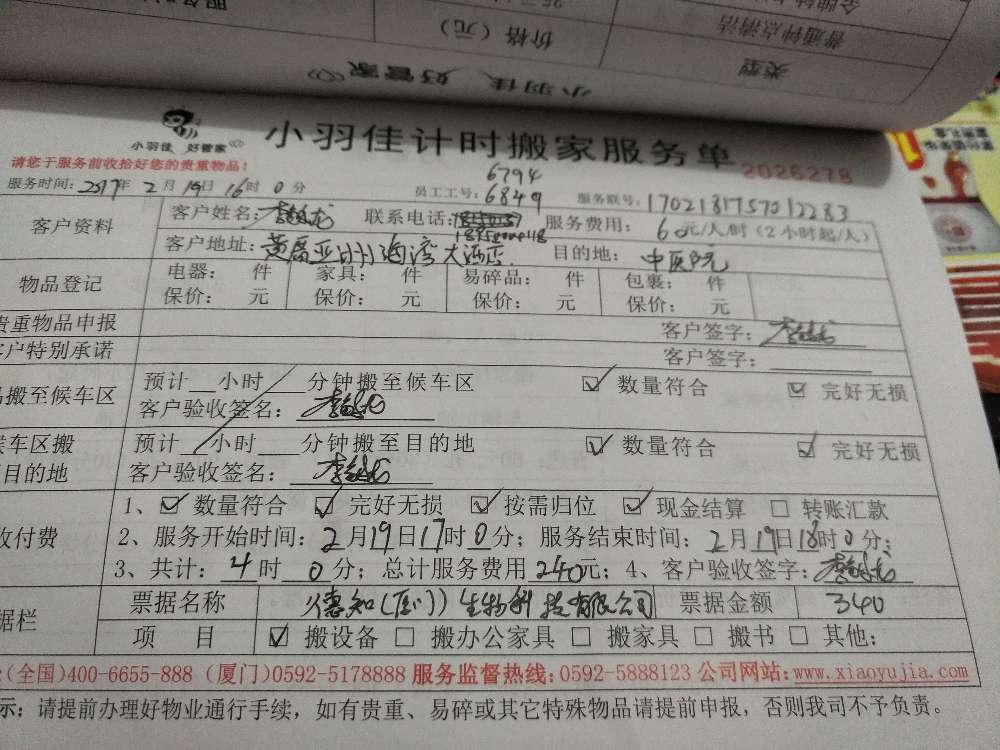 服务
25元
金牌钟点
价格（元）
普通钟点清洁
类型
小羽佳 好管家
小羽佳 好管家
小羽佳计时搬家服务单
请您于服务前收拾好您的贵重物品！
2026278
服务时间：2017年 2月 19日 16时 0分
员工工号：
6794
6849
服务联号：1702181757012283
客户资料
客户姓名：
联系电话：
服务费用：60元/人/时（2小时起/人）
客户地址：黄厝亚洲海湾大酒店
目的地：中医院
物品登记
电器： 件 家具： 件 易碎品： 件 包裹： 件
保价： 元 保价： 元 保价： 元 保价： 元
贵重物品申报
客户签字：
客户特别承诺
客户签字：
搬至候车区
预计 小时 分钟搬至候车区 数量符合 完好无损
客户验收签名：
候车区搬
目的地
预计 小时 分钟搬至目的地 数量符合 完好无损
客户验收签名：
收付费
1、 数量符合 完好无损 按需归位 现金结算 转账汇款
2、服务开始时间：2月19日17时0分；服务结束时间：2月19日18时0分；
3、共计：4时0分；总计服务费用240元；4、客户验收签字：
据栏
票据名称 德知(厦门)生物科技有限公司 票据金额 340
项 目 搬设备 搬办公家具 搬家具 搬书 其他：
(全国)400-6655-888 (厦门)0592-5178888 服务监督热线：0592-5888123 公司网站：www.xiaoyujia.com
示：请提前办理好物业通行手续，如有贵重、易碎或其它特殊物品请提前申报，否则我司不予负责。